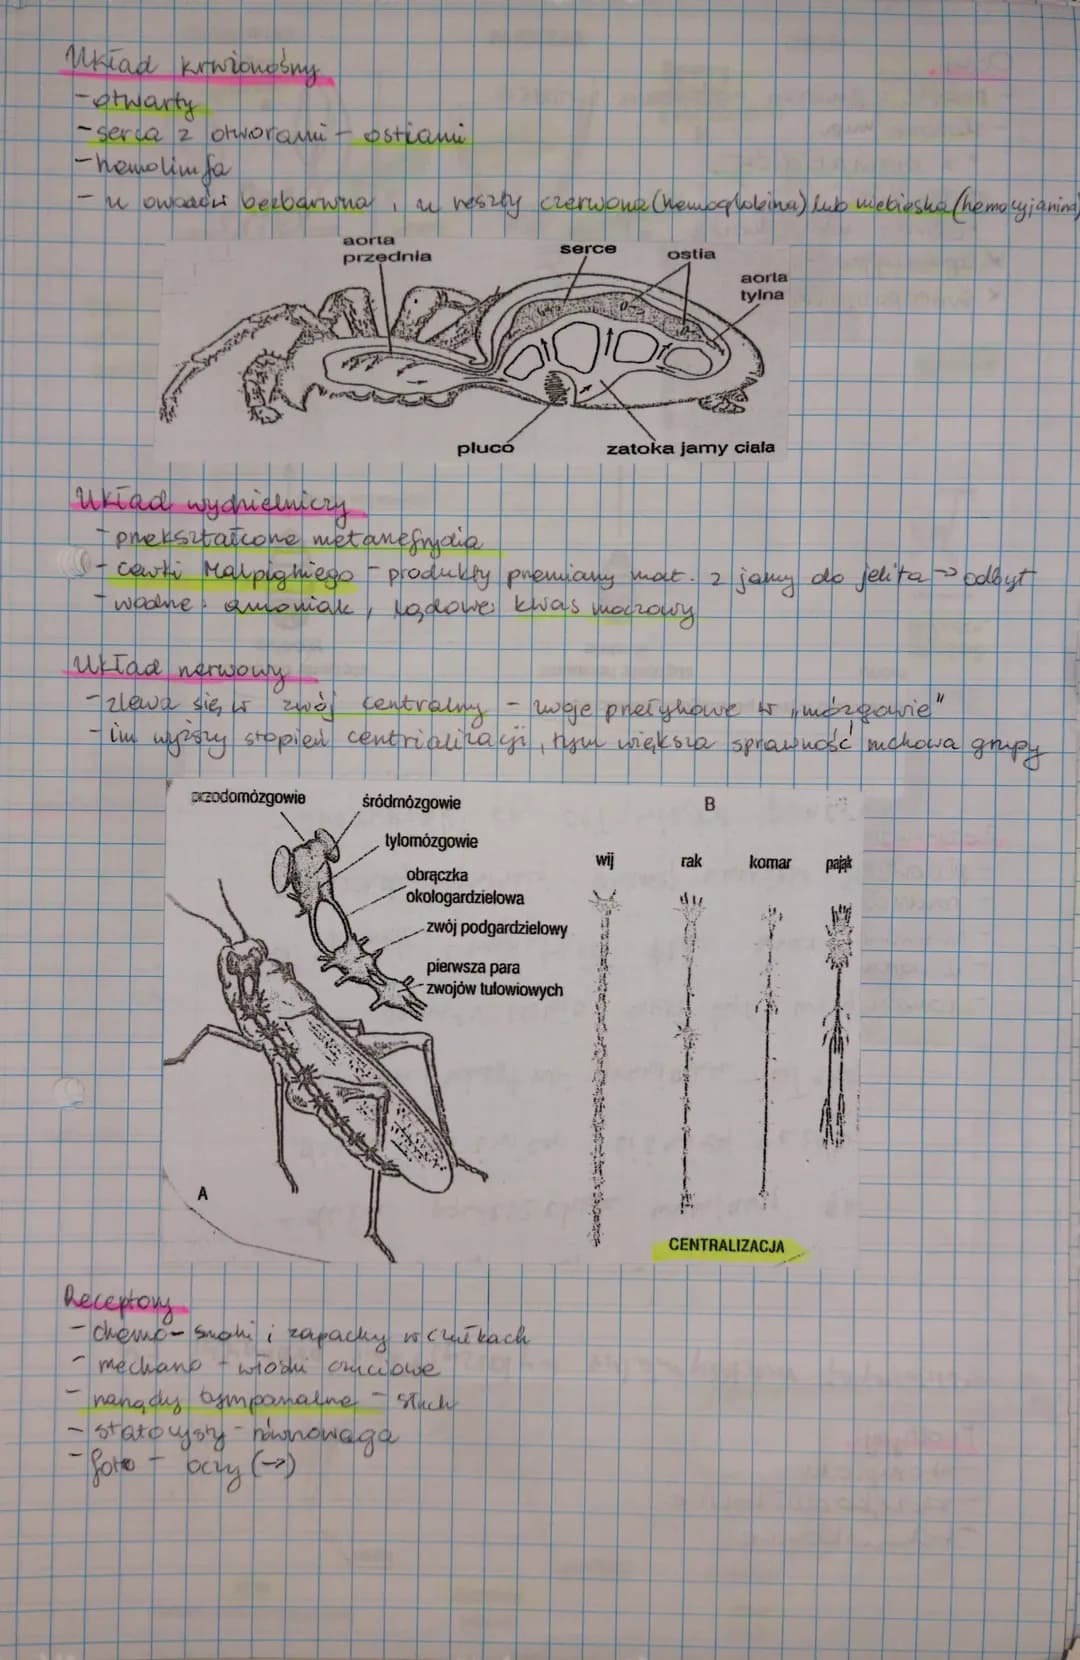 Układ krwionośny
- otwarty
- serca z otworami - ostiami
- hemolimfa
- u owadów bezbarwna, u reszty czerwona (hemoglobina) lub niebieska (hemocyjanina)
aorta przednia
serce
ostia
aorta tylna
płuco
zatoka jamy ciała
Układ wydzielniczy
- przekształcone metanefrydia
- cewki Malpighiego - produkty przemiany mat. z jamy do jelita → odbyt
- wodne: amoniak, lądowe: kwas moczowy
Układ nerwowy
- zlewa się w zwój centralny - zwoje przełykowe w "mózgowie"
- im wyższy stopień centrializacji, tym większa sprawność ruchowa grupy
przodomózgowie
śródmózgowie
tyłomózgowie
obrączka okołogardzielowa
zwój podgardzielowy
pierwsza para zwojów tułowiowych
A
B
wij
rak
komar
pająk
CENTRALIZACJA
Receptory
- chemo - smaki i zapachy w czułkach
- mechano - włoski czuciowe
- narządy tympanalne - słuch
- statocysty - równowaga
- foto - oczy (→)